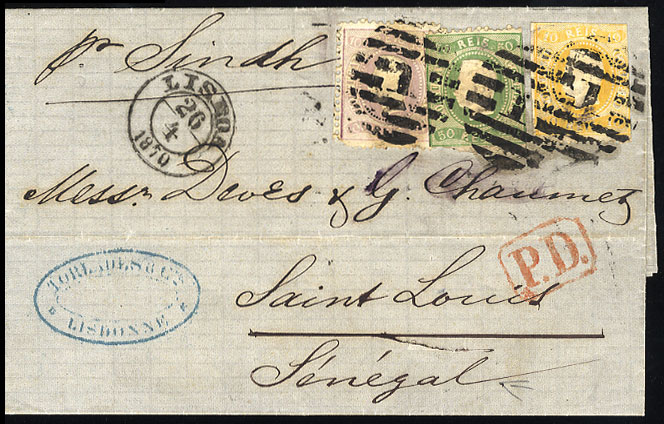 pr Sindh
LISBOA
26
4
1870
50 REIS 50
50
REIS
Messrs Devès & G. Chaumet
P.D.
TORLADES & Cº
LISBONNE
Saint Louis
Sénégal